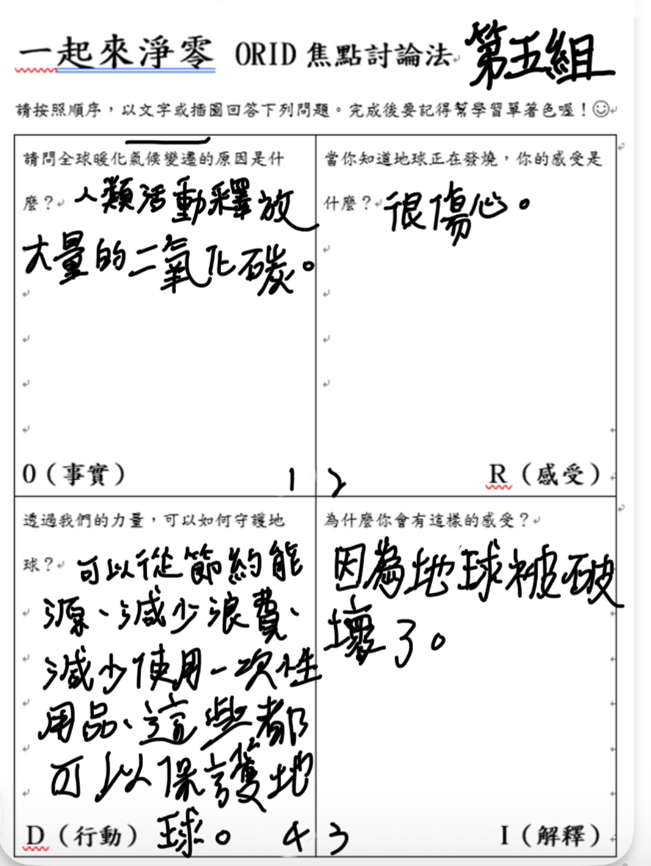 一起來淨零 ORID 焦點討論法 第五組
請按照順序，以文字或插圖回答下列問題。完成後要記得幫學習單著色喔！☺
請問全球暖化氣候變遷的原因是什
麼？人類活動釋放
大量的二氧化碳。
O（事實） 1
當你知道地球正在發燒，你的感受是
什麼？很傷心。
2 R（感受）
透過我們的力量，可以如何守護地
球？可以從節約能
源、減少浪費、
減少使用一次性
用品、這些都
可以保護地
D（行動）球。 4
為什麼你會有這樣的感受？
因為地球被破
壞了。
3 I（解釋）